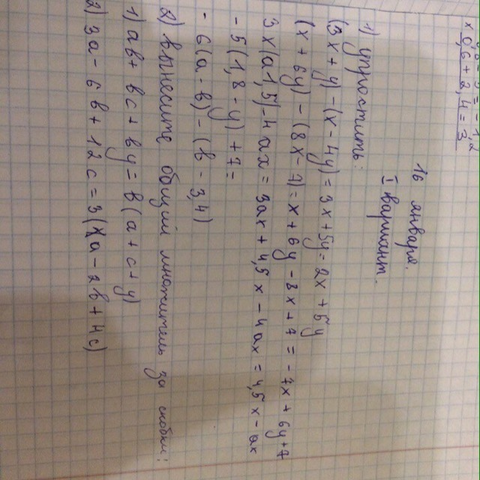 x 0,6 + 2,4 = 3
16 января.
I вариант.
1) упростить:
(3x + y) - (x - 4y) = 3x + 5y = 2x + 5y
(x + 6y) - (8x - 7) = x + 6y - 8x + 7 = - 7x + 6y + 7
3x(a 1,5) - 4ax = 3ax + 4,5x - 4ax = 4,5x - ax
- 5(1,8 - y) + 7 =
- 6(a - b) - (b - 3,4)
2) вынесите общий множитель за скобки:
1) ab + bc + by = b(a + c + y)
2) 3a - 6b + 12c = 3(a - 2b + 4c)